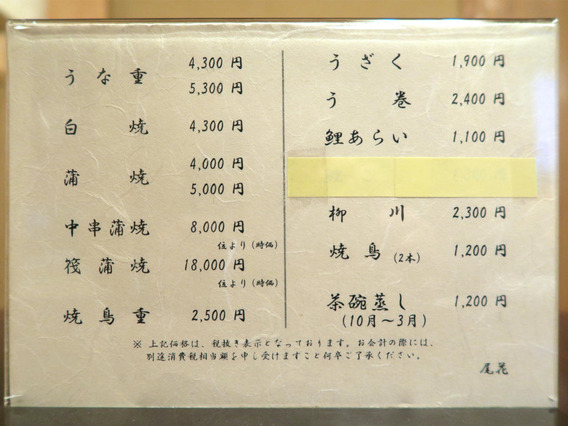 うな重 4,300 円
5,300 円
白焼 4,300 円
蒲焼 4,000 円
5,000 円
中串蒲焼 8,000 円
位より (時価)
筏蒲焼 18,000 円
位より (時価)
焼鳥重 2,500 円
うざく 1,900 円
う巻 2,400 円
鯉あらい 1,100 円
柳川 2,300 円
焼鳥 (2本) 1,200 円
茶碗蒸し 1,200 円
(10月～3月)
※ 上記価格は、税抜き表示となっております。お会計の際には、
別途消費税相当額を申し受けますこと何卒ご了承ください。
尾花